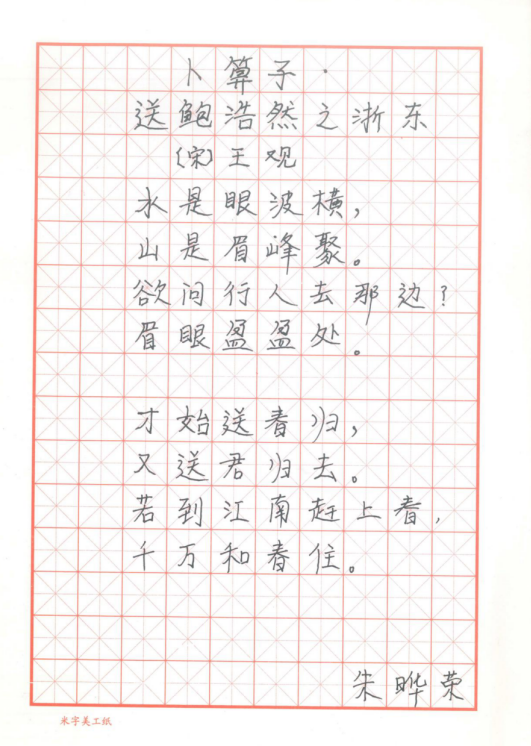 卜算子·
送鲍浩然之浙东
〔宋〕王观
水是眼波横，
山是眉峰聚。
欲问行人去那边？
眉眼盈盈处。
才始送春归，
又送君归去。
若到江南赶上春，
千万和春住。
朱晔荣
米字美工纸